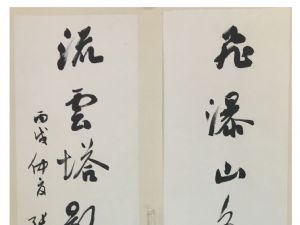 飞瀑山
流雲塔影
丙戌仲夏